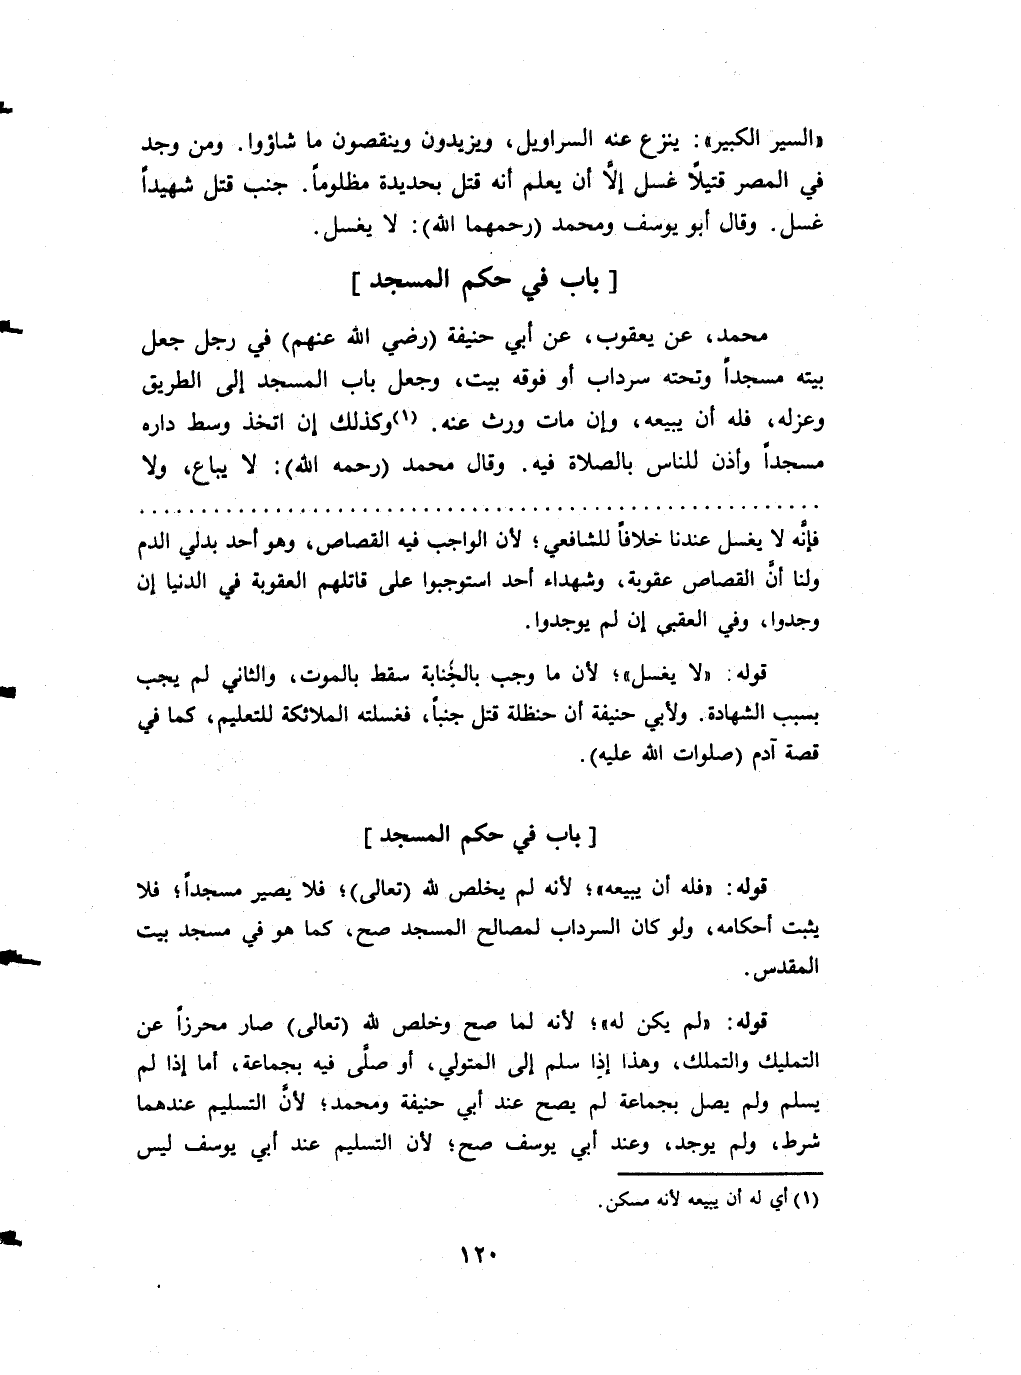 «السير الكبير»: ينزع عنه السراويل، ويزيدون وينقصون ما شاؤوا. ومن وجد
في المصر قتيلاً غسل إلَّا أن يعلم أنه قتل بحديدة مظلوماً. جنب قتل شهيداً
غسل. وقال أبو يوسف ومحمد (رحمهما الله): لا يغسل.
[ باب في حكم المسجد ]
محمد، عن يعقوب، عن أبي حنيفة (رضي الله عنهم) في رجل جعل
بيته مسجداً وتحته سرداب أو فوقه بيت، وجعل باب المسجد إلى الطريق
وعزله، فله أن يبيعه، وإن مات ورث عنه. (١)وكذلك إن اتخذ وسط داره
مسجداً وأذن للناس بالصلاة فيه. وقال محمد (رحمه الله): لا يباع، ولا
فإنَّه لا يغسل عندنا خلافاً للشافعي؛ لأن الواجب فيه القصاص، وهو أحد بدلي الدم
ولنا أنَّ القصاص عقوبة، وشهداء أحد استوجبوا على قاتلهم العقوبة في الدنيا إن
وجدوا، وفي العقبى إن لم يوجدوا.
قوله: «لا يغسل»؛ لأن ما وجب بالجُنابة سقط بالموت، والثاني لم يجب
بسبب الشهادة. ولأبي حنيفة أن حنظلة قتل جنباً، فغسلته الملائكة للتعليم، كما في
قصة آدم (صلوات الله عليه).
[ باب في حكم المسجد ]
قوله: «فله أن يبيعه»؛ لأنه لم يخلص لله (تعالى)؛ فلا يصير مسجداً؛ فلا
يثبت أحكامه، ولو كان السرداب لمصالح المسجد صح، كما هو في مسجد بيت
المقدس.
قوله: «لم يكن له»؛ لأنه لما صح وخلص لله (تعالى) صار محرزاً عن
التمليك والتملك، وهذا إذا سلم إلى المتولي، أو صلَّى فيه بجماعة، أما إذا لم
يسلم ولم يصل بجماعة لم يصح عند أبي حنيفة ومحمد؛ لأنَّ التسليم عندهما
شرط، ولم يوجد، وعند أبي يوسف صح؛ لأن التسليم عند أبي يوسف ليس
(١) أي له أن يبيعه لأنه مسكن.
١٢٠